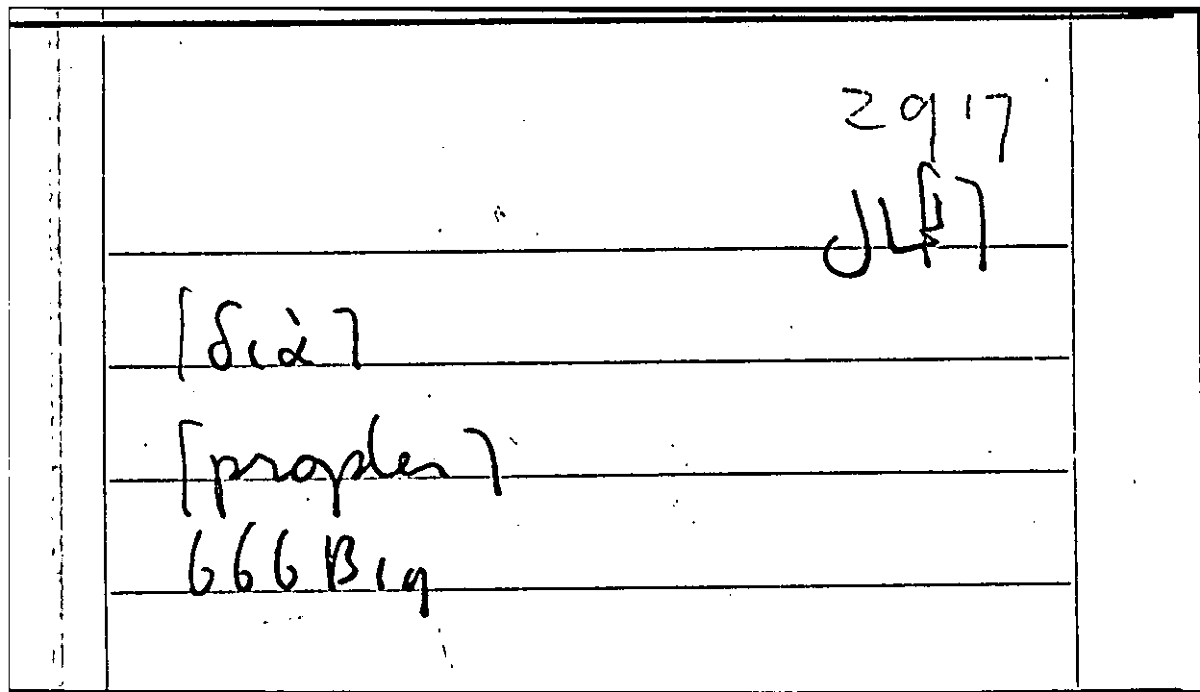 2917
[διὰ]
[propter]
666B19